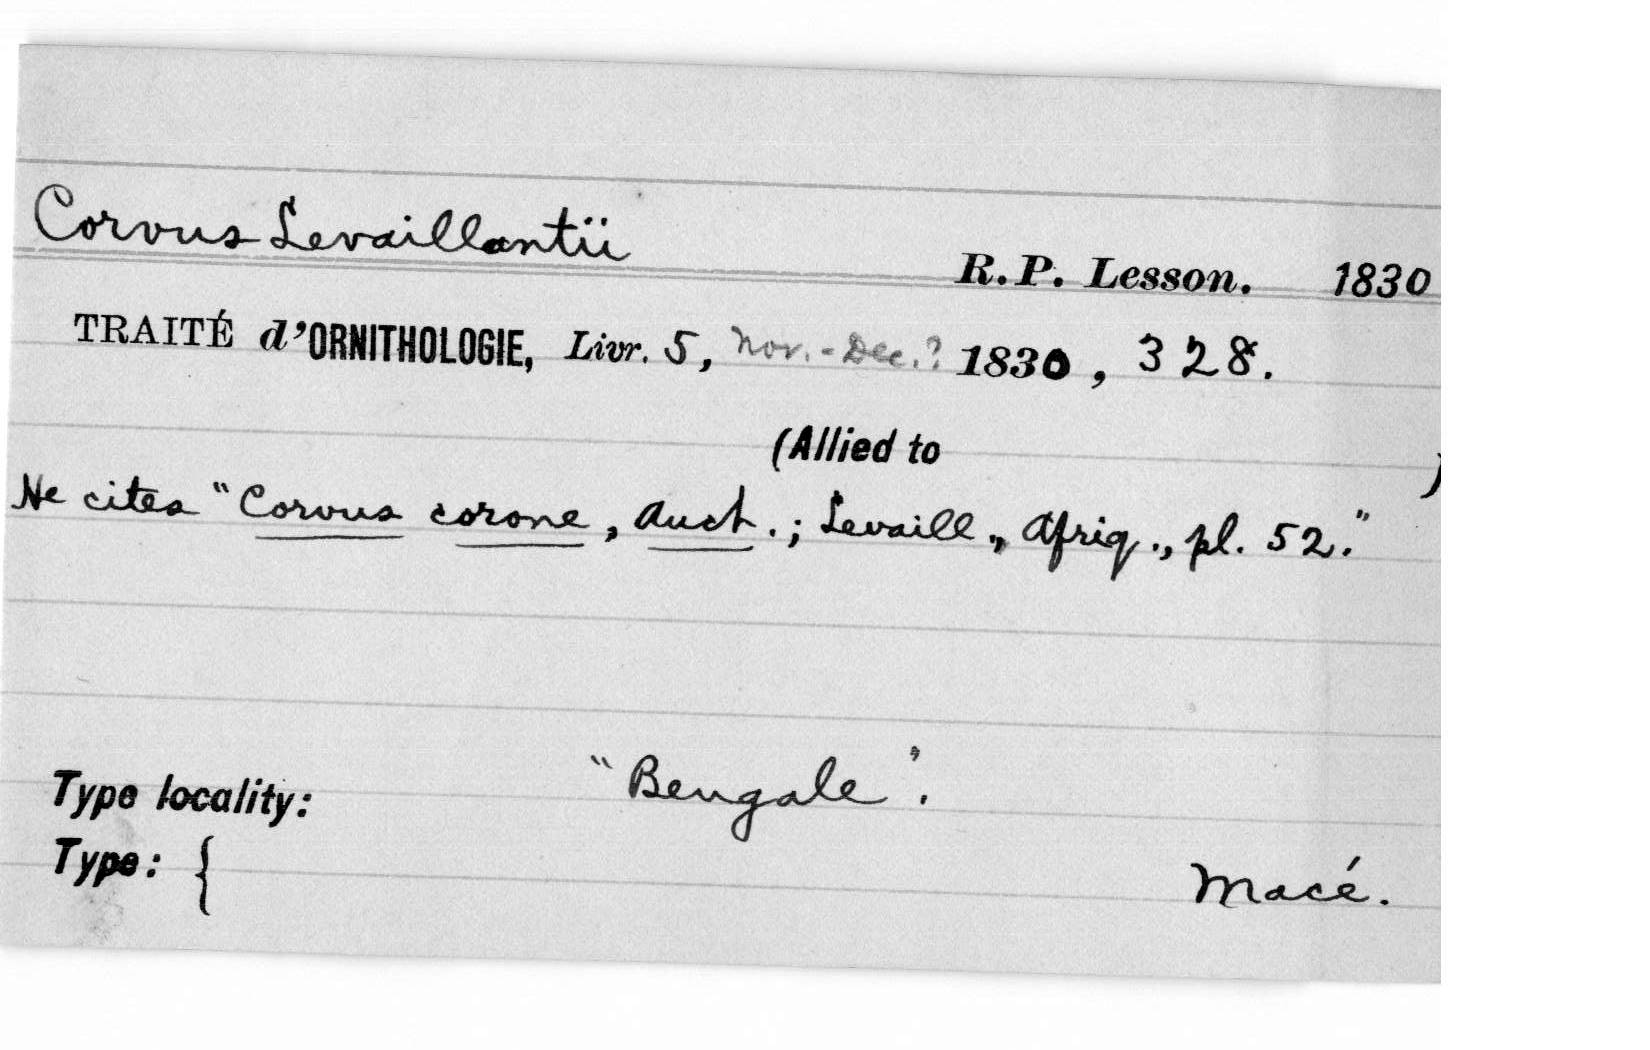 Corvus Levaillantii
R.P. Lesson. 1830
TRAITÉ d'ORNITHOLOGIE, Livr. 5, Nov.-Dec.? 1830, 328.
(Allied to )
He cites "Corvus corone, Auct.; Levaill., Afriq., pl. 52."
Type locality: "Bengale".
Type: { Macé.